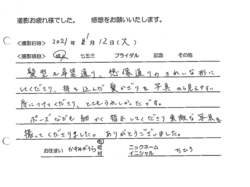 撮影お疲れ様でした。 感想をお願いいたします。
<撮影日時> 2021年 1月12日(火)
<撮影項目> 成人 七五三 ブライダル 記念 その他
髪型も希望通り、想像通りのきれいな形に
してくださり、持ち込んだ髪かざりを写真の見えやすい
所につけてくださり、とてもうれしかったです。
ポーズなども細かく指示してくださり素敵な写真を
撮ってくださりました。ありがとうございました。
お住まい かすみがうら ニックネーム
イニシャル ちひろ